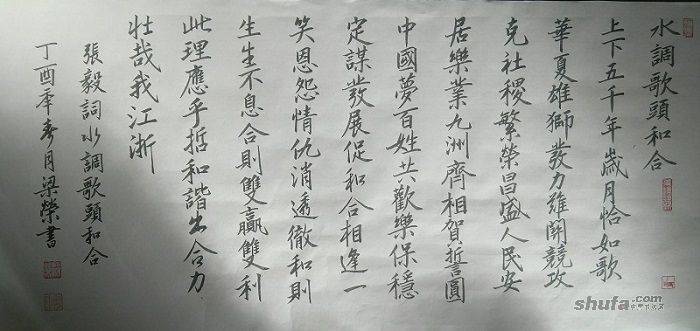 水調歌頭和合
上下五千年歲月恰如歌
華夏雄獅發力雖開競攻
克社稷繁榮昌盛人民安
居樂業九洲齊相賀誓圓
中國夢百姓共歡樂保穩
定謀發展促和合相逢一
笑恩怨情仇消透徹和則
生生不息合則雙贏雙利
此理應乎哲和諧出合力
壯哉我江浙
張毅詞水調歌頭和合
丁酉年春月梁榮書
shufa.com